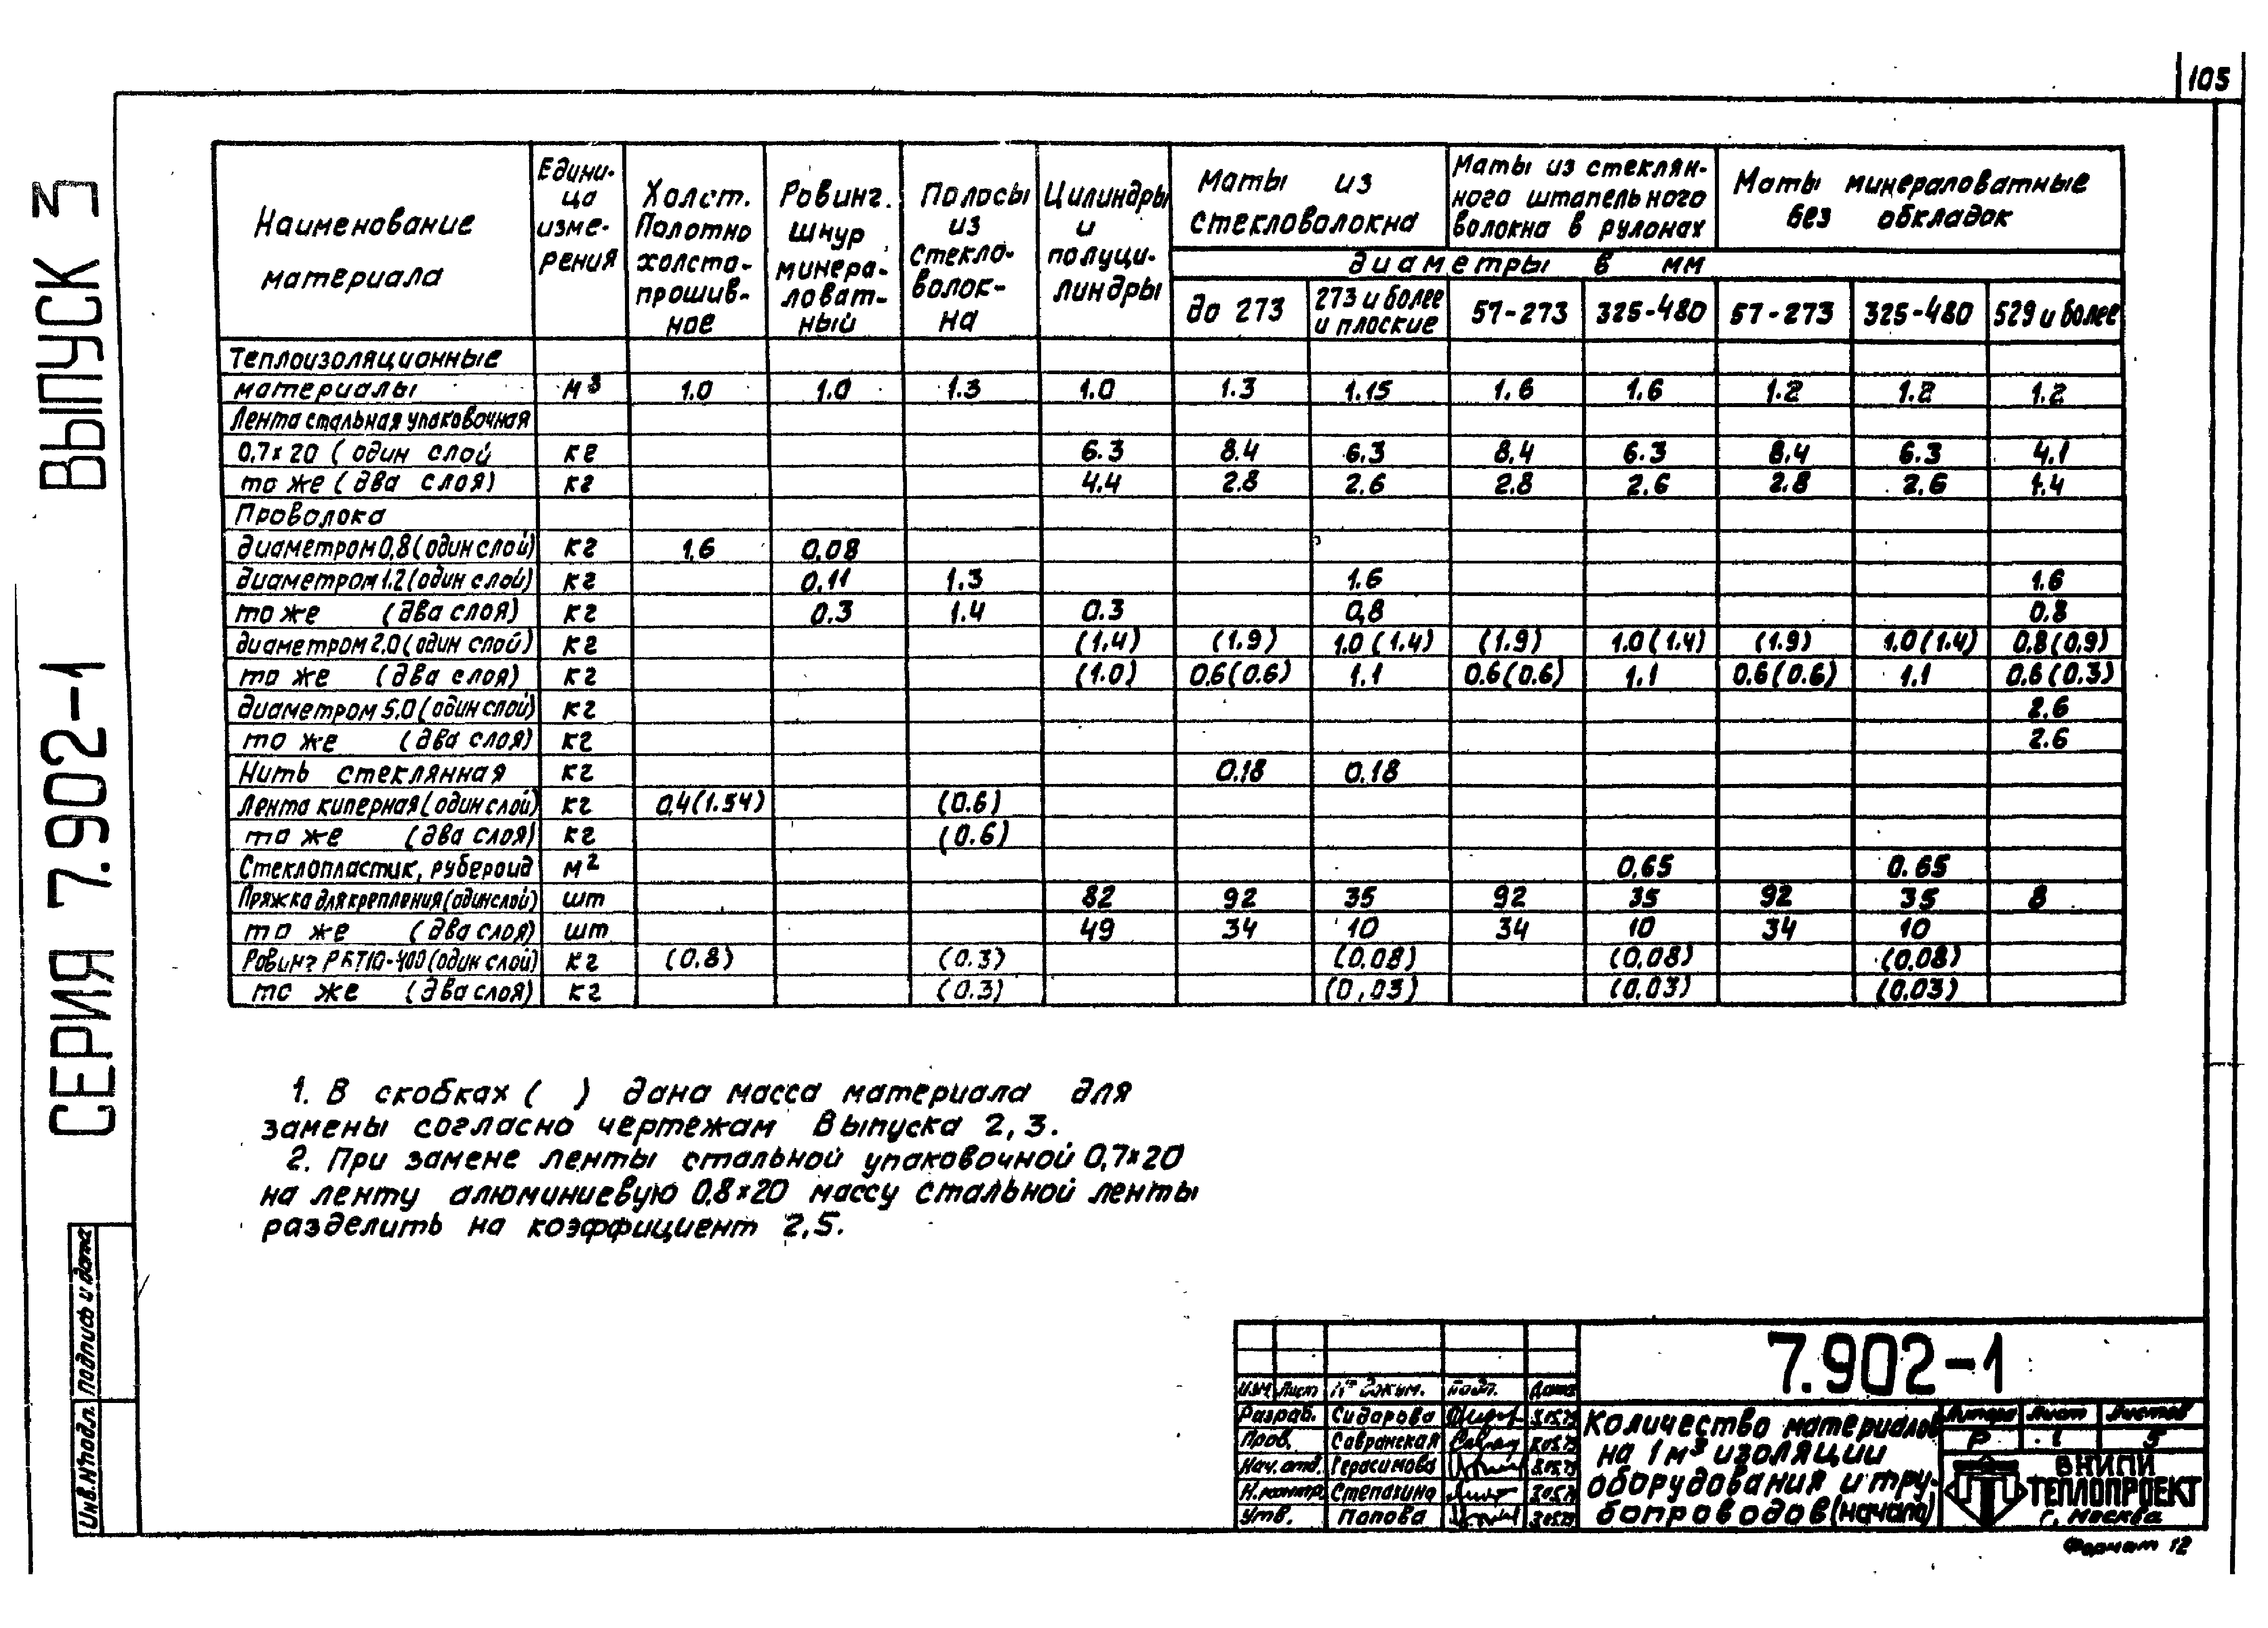 105
СЕРИЯ 7.902-1 ВЫПУСК 3
Наименование материала
Едини-
ца
изме-
рения
Холст.
Полотно
холсто-
прошив-
ное
Ровинг.
шнур
минера-
ловат-
ный
Полосы
из
стекло-
волок-
на
Цилиндры
и
полуци-
линдры
Маты из
стекловолокна
Маты из стеклян-
ного штапельного
волокна в рулонах
Маты минераловатные
без обкладок
диаметры в мм
до 273
273 и более
и плоские
57-273 325-480 57-273 325-480 529 и более
Теплоизоляционные
материалы м3 1.0 1.0 1.3 1.0 1.3 1.15 1.6 1.6 1.2 1.2 1.2
Лента стальная упаковочная
0,7х20 (один слой кг 6.3 8.4 6.3 8.4 6.3 8.4 6.3 4.1
то же (два слоя) кг 4.4 2.8 2.6 2.8 2.6 2.8 2.6 1.4
Проволока
диаметром 0,8 (один слой) кг 1,6 0,08
диаметром 1.2 (один слой) кг 0.11 1.3 1.6 1.6
то же (два слоя) кг 0.3 1.4 0.3 0,8 0.8
диаметром 2.0 (один слой) кг (1.4) (1.9) 1.0 (1.4) (1.9) 1.0 (1.4) (1.9) 1.0 (1.4) 0.8 (0.9)
то же (два слоя) кг (1.0) 0.6 (0.6) 1.1 0.6 (0.6) 1.1 0.6 (0.6) 1.1 0.6 (0.3)
диаметром 5.0 (один слой) кг 2.6
то же (два слоя) кг 2.6
Нить стеклянная кг 0.18 0.18
Лента киперная (один слой) кг 0,4 (1.54) (0.6)
то же (два слоя) кг (0.6)
Стеклопластик, рубероид м2 0,65 0.65
Пряжка для крепления (один слой) шт 82 92 35 92 35 92 35 8
то же (два слоя) шт 49 34 10 34 10 34 10
Ровинг РБТ10-400 (один слой) кг (0.8) (0.3) (0.08) (0,08) (0.08)
то же (два слоя) кг (0.3) (0,03) (0.03) (0.03)
1. В скобках ( ) дана масса материала для
замены согласно чертежам Выпуска 2,3.
2. При замене ленты стальной упаковочной 0,7х20
на ленту алюминиевую 0,8х20 массу стальной ленты
разделить на коэффициент 2,5.
Инв.N°подл. Подпись и дата
Изм Лист N° докум. Подп. Дата
Разраб. Сидорова
Пров. Савранская
Нач. отд. Герасимова
Н. контр. Степахина
Утв. Попова
7.902-1
Количество материалов
на 1 м3 изоляции
оборудования и тру-
бопроводов (начало)
Литера Лист Листов
Р 1 5
ВНИПИ
ТЕПЛОПРОЕКТ
г. Москва
Формат 12